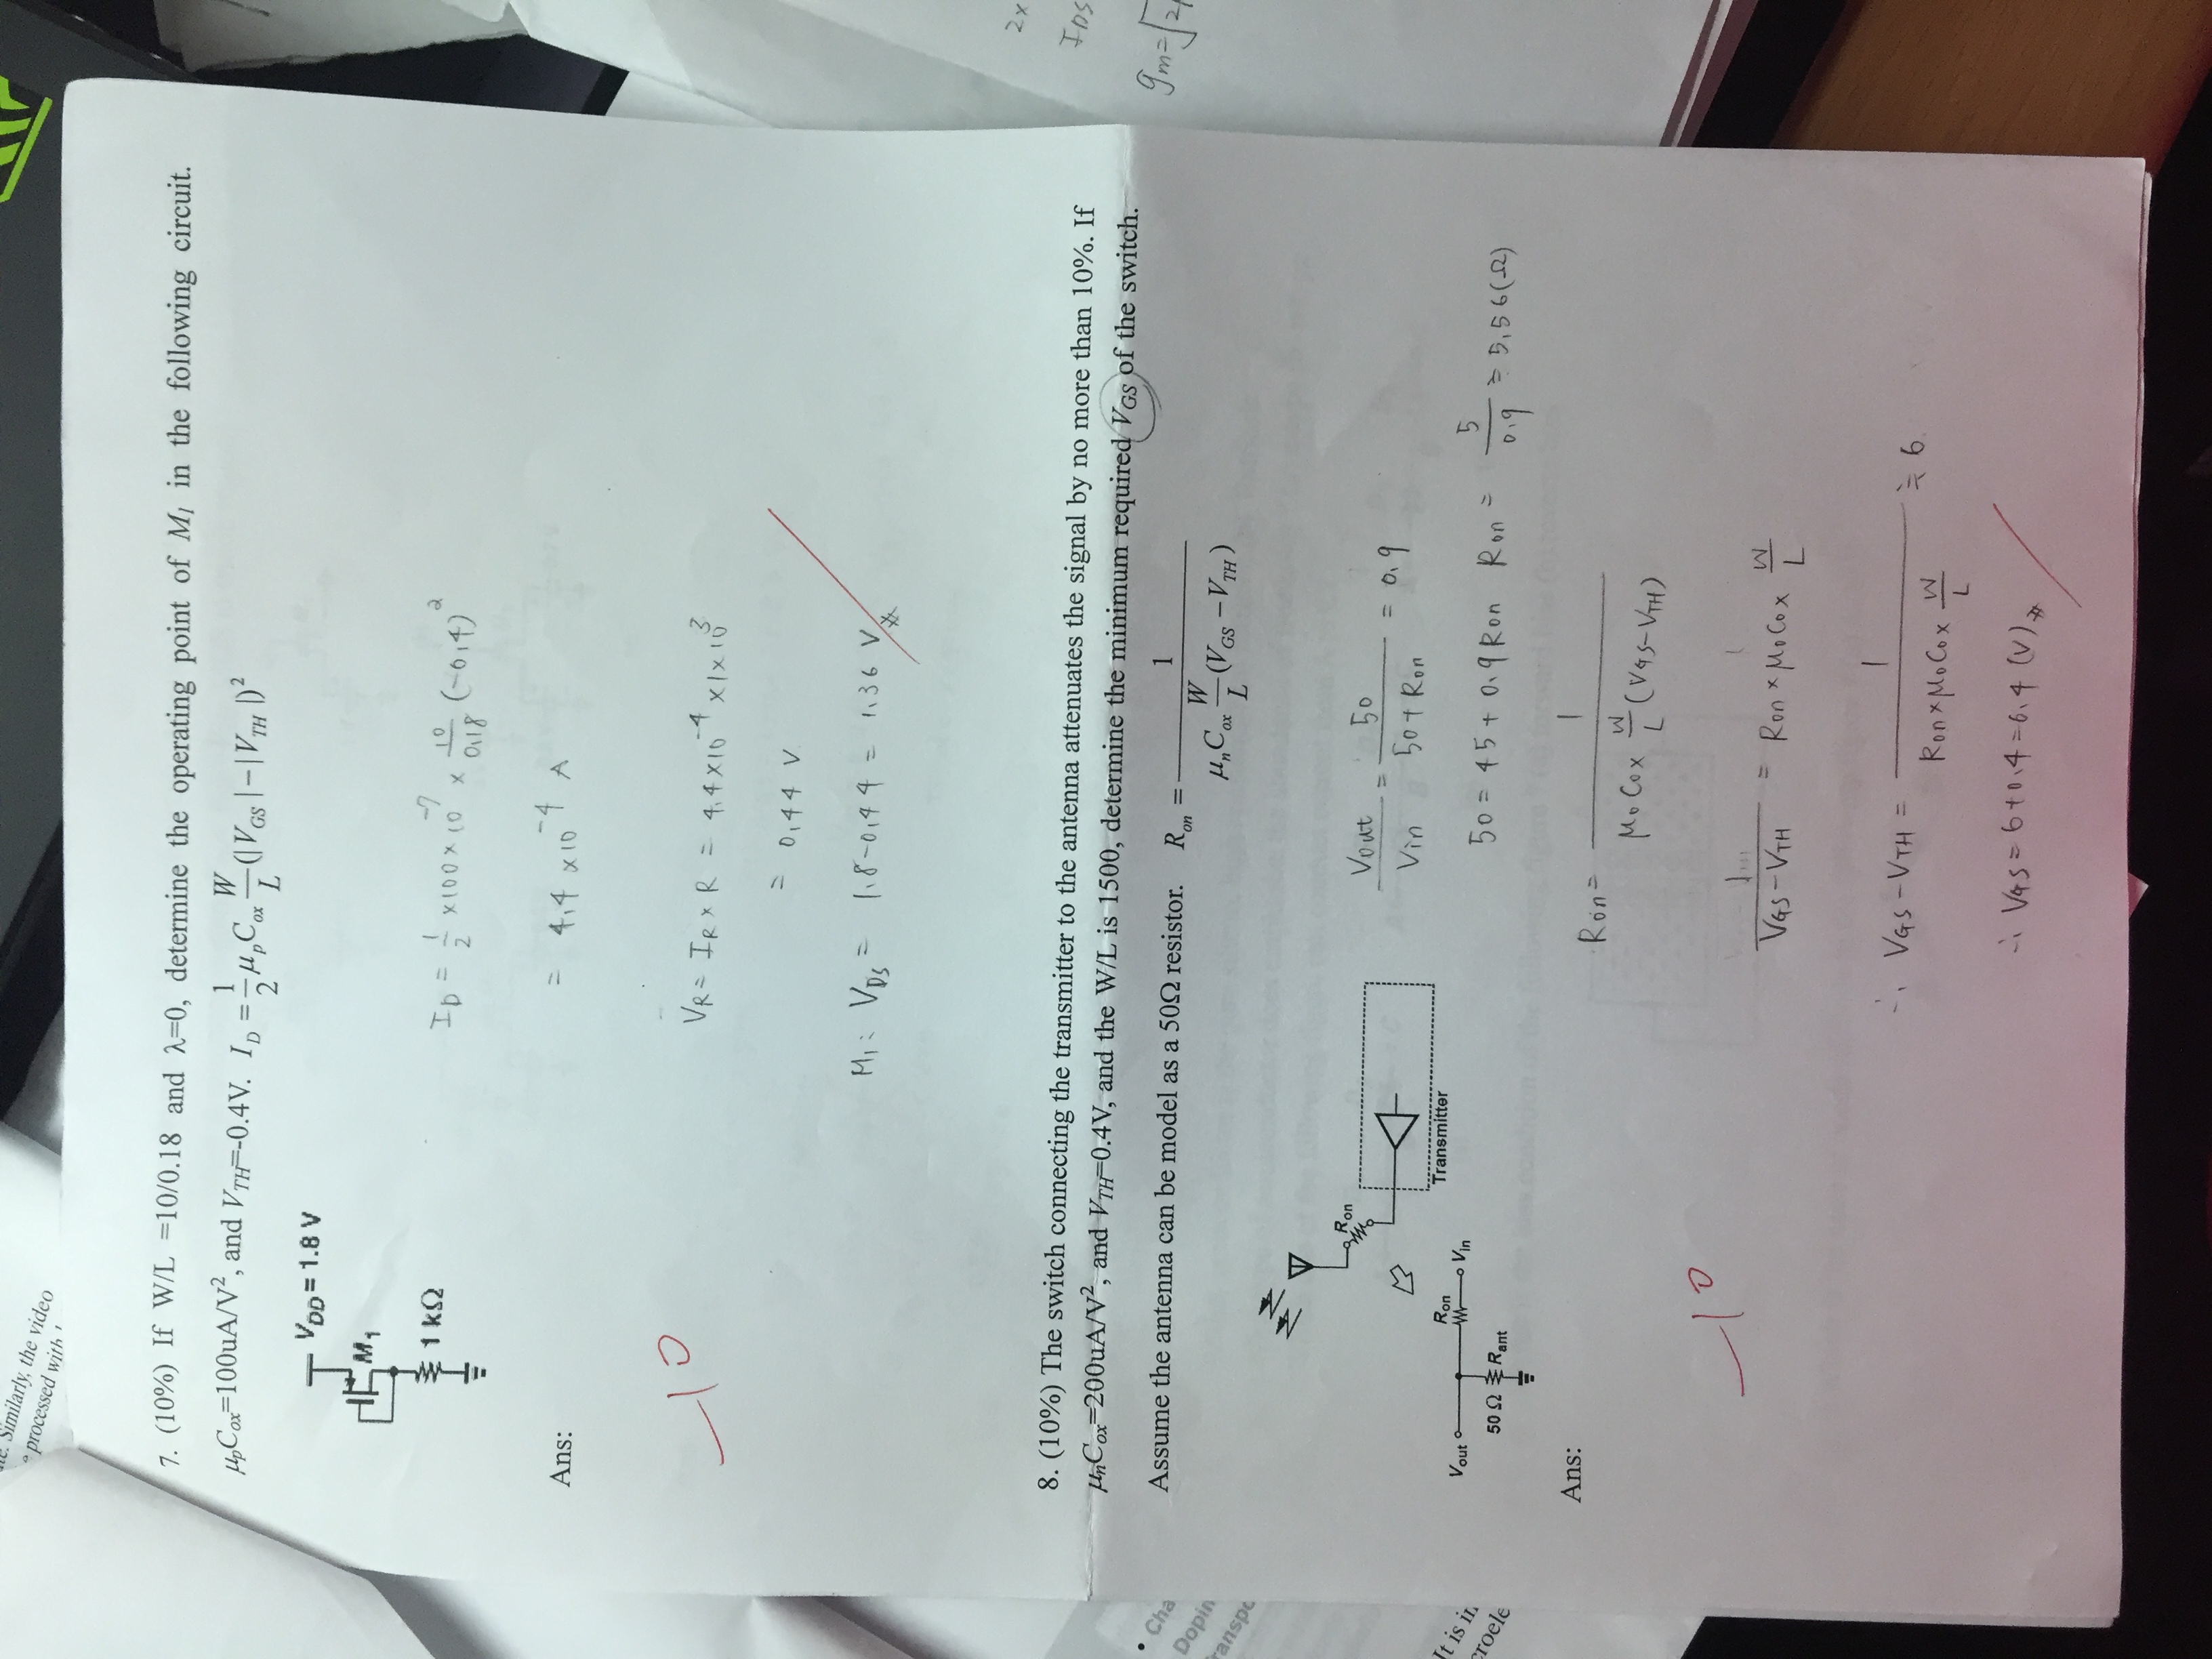 Similarly, the video
processed with
7. (10%) If W/L =10/0.18 and λ=0, determine the operating point of M1 in the following circuit.
μpCox=100uA/V², and VTH=-0.4V. ID = 1/2 μpCox W/L (|VGS|−|VTH|)²
VDD = 1.8 V
M1
1 kΩ
ID = 1/2 ×100×10^-7 × 10/0.18 (-0.4)²
Ans:
= 4.4 ×10^-4 A
-10
VR = IR × R = 4.4×10^-4 ×1×10^3
= 0.44 V
M1: VDS = 1.8-0.44 = 1.36 V #
8. (10%) The switch connecting the transmitter to the antenna attenuates the signal by no more than 10%. If
μnCox=200uA/V², and VTH=0.4V, and the W/L is 1500, determine the minimum required VGS of the switch.
Assume the antenna can be model as a 50Ω resistor. Ron = 1 / (μnCox W/L (VGS − VTH))
Ron
Transmitter
Vout
Ron
Vin
50 Ω
Rant
Vout/Vin = 50/(50+Ron) = 0.9
50 = 45 + 0.9Ron Ron = 5/0.9 ≒ 5.56(Ω)
Ans:
Ron = 1 / (μoCox W/L (VGS-VTH))
-10
1/(VGS-VTH) = Ron × μoCox W/L
∴ VGS-VTH = 1 / (Ron×μoCox W/L) ≒ 6
∴ VGS = 6+0.4 = 6.4 (V) #
2x
IDS
gm=√2
• Cha
Dopin
ranspo
It is in
croele